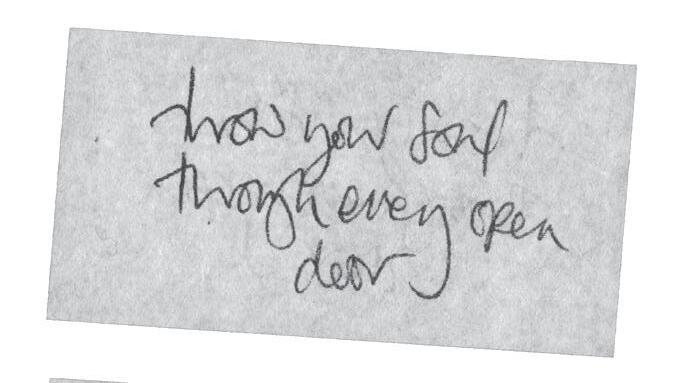 throw your soul
through every open
door